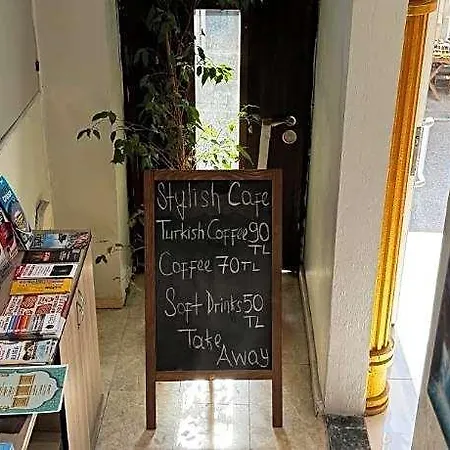 Stylish Cafe
Turkish Coffee 90
TL
Coffee 70 TL
Soft Drinks 50
TL
Take
Away